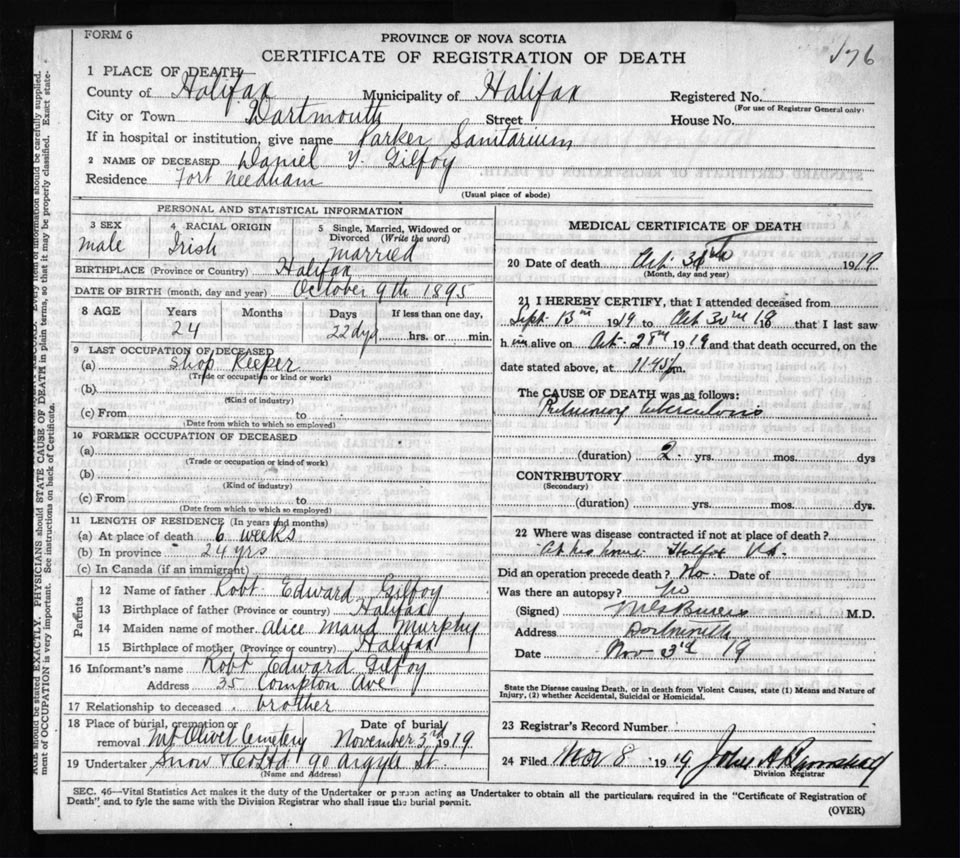 FORM 6
PROVINCE OF NOVA SCOTIA
CERTIFICATE OF REGISTRATION OF DEATH
176
1 PLACE OF DEATH
County of Halifax Municipality of Halifax Registered No.
(For use of Registrar General only)
City or Town Dartmouth Street House No.
If in hospital or institution, give name Parker Sanitarium
2 NAME OF DECEASED Daniel Y. Gilfoy
Residence Fort Needham
(Usual place of abode)
PERSONAL AND STATISTICAL INFORMATION
3 SEX male
4 RACIAL ORIGIN Irish
5 Single, Married, Widowed or Divorced (Write the word) married
BIRTHPLACE (Province or Country) Halifax
DATE OF BIRTH (month, day and year) October 9th 1895
8 AGE Years Months Days If less than one day,
24 22 dys hrs. or min.
9 LAST OCCUPATION OF DECEASED
(a) Shop Keeper
(Trade or occupation or kind or work)
(b)
(Kind of industry)
(c) From to
(Date from which to which so employed)
10 FORMER OCCUPATION OF DECEASED
(a)
(Trade or occupation or kind of work)
(b)
(Kind of industry)
(c) From to
(Date from which to which so employed)
11 LENGTH OF RESIDENCE (In years and months)
(a) At place of death 6 weeks
(b) In province 24 yrs
(c) In Canada (if an immigrant)
Parents
12 Name of father Robt Edward Gilfoy
13 Birthplace of father (Province or country) Halifax
14 Maiden name of mother Alice Maud Murphy
15 Birthplace of mother (Province or country) Halifax
16 Informant's name Robt Edward Gilfoy
Address 35 Compton Ave
17 Relationship to deceased brother
18 Place of burial, cremation or removal Mt Olivet Cemetery
Date of burial November 3rd 1919.
19 Undertaker Snow & Co Ltd 90 Argyle St.
(Name and Address)
MEDICAL CERTIFICATE OF DEATH
20 Date of death Oct. 1919
(Month, day and year)
21 I HEREBY CERTIFY, that I attended deceased from
Sept. 1919 to Oct 30 19 that I last saw
h im alive on Oct. 28th 1919 and that death occurred, on the
date stated above, at 11.45 p.m.
The CAUSE OF DEATH was as follows:
Pulmonary tuberculosis
(duration) 2 yrs. mos. dys
CONTRIBUTORY
(Secondary)
(duration) yrs. mos. dys.
22 Where was disease contracted if not at place of death?
At his home Halifax N.S.
Did an operation precede death? No. Date of
Was there an autopsy? No
(Signed) M.D.
Address Dartmouth
Date Nov 3rd 19
State the Disease causing Death, or in death from Violent Causes, state (1) Means and Nature of
Injury, (2) whether Accidental, Suicidal or Homicidal.
23 Registrar's Record Number
24 Filed Nov 8 1919 John A
Division Registrar
SEC. 46—Vital Statistics Act makes it the duty of the Undertaker or person acting as Undertaker to obtain all the particulars required in the "Certificate of Registration of
Death" and to fyle the same with the Division Registrar who shall issue the burial permit.
(OVER)